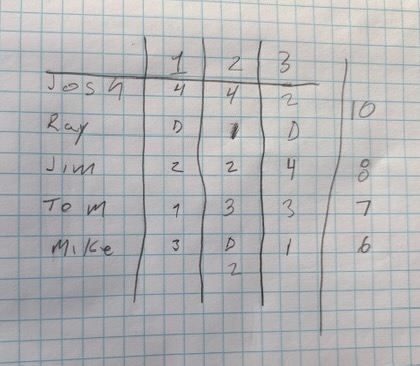 1 2 3
Josh 4 4 2 10
Ray D 1 D
Jim 2 2 4 8
Tom 1 3 3 7
Mike 3 D 1 6
2